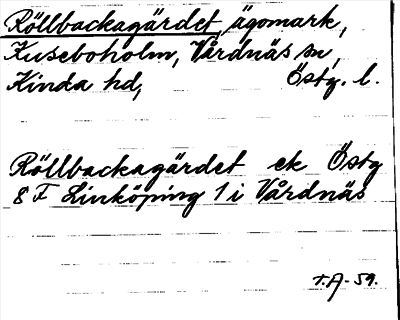 Röllbackagärdet, ägomark,
Kuseboholm, Vårdnäs sn,
Kinda hd, Östg. l.
Röllbackagärdet ek Östg
8 F Linköping 1 i Vårdnäs
T.A-59.